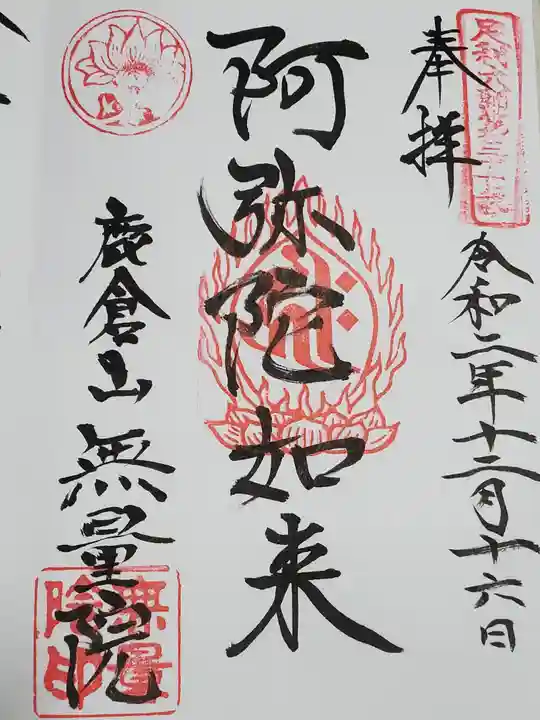 奉拝
令和二年十二月十六日
阿弥陀如来
鹿倉山 無量院
無量院印